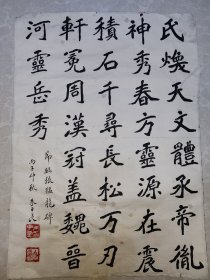 氏煥天文體承帝胤
神秀春方靈源在震
積石千尋長松万刃
軒冕周漢冠盖魏晉
河靈岳秀
節臨張猛龍碑
丙子仲秋